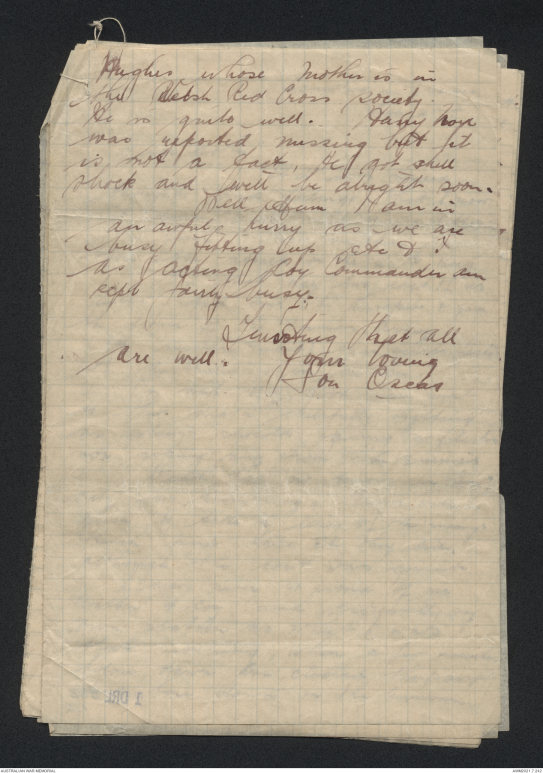 Hughes whose Mother is in
the Welsh Red Cross society.
He is quite well. Harry
was reported missing but it
is not a fact, He got shell
shock and will be alright soon.
Well Mum I am in
an awful hurry as we are
busy fitting up etc &
as acting Coy Commander am
kept fairly busy.
Trusting that all
are well. Your loving
Son Oscar
1 DRL
AUSTRALIAN WAR MEMORIAL